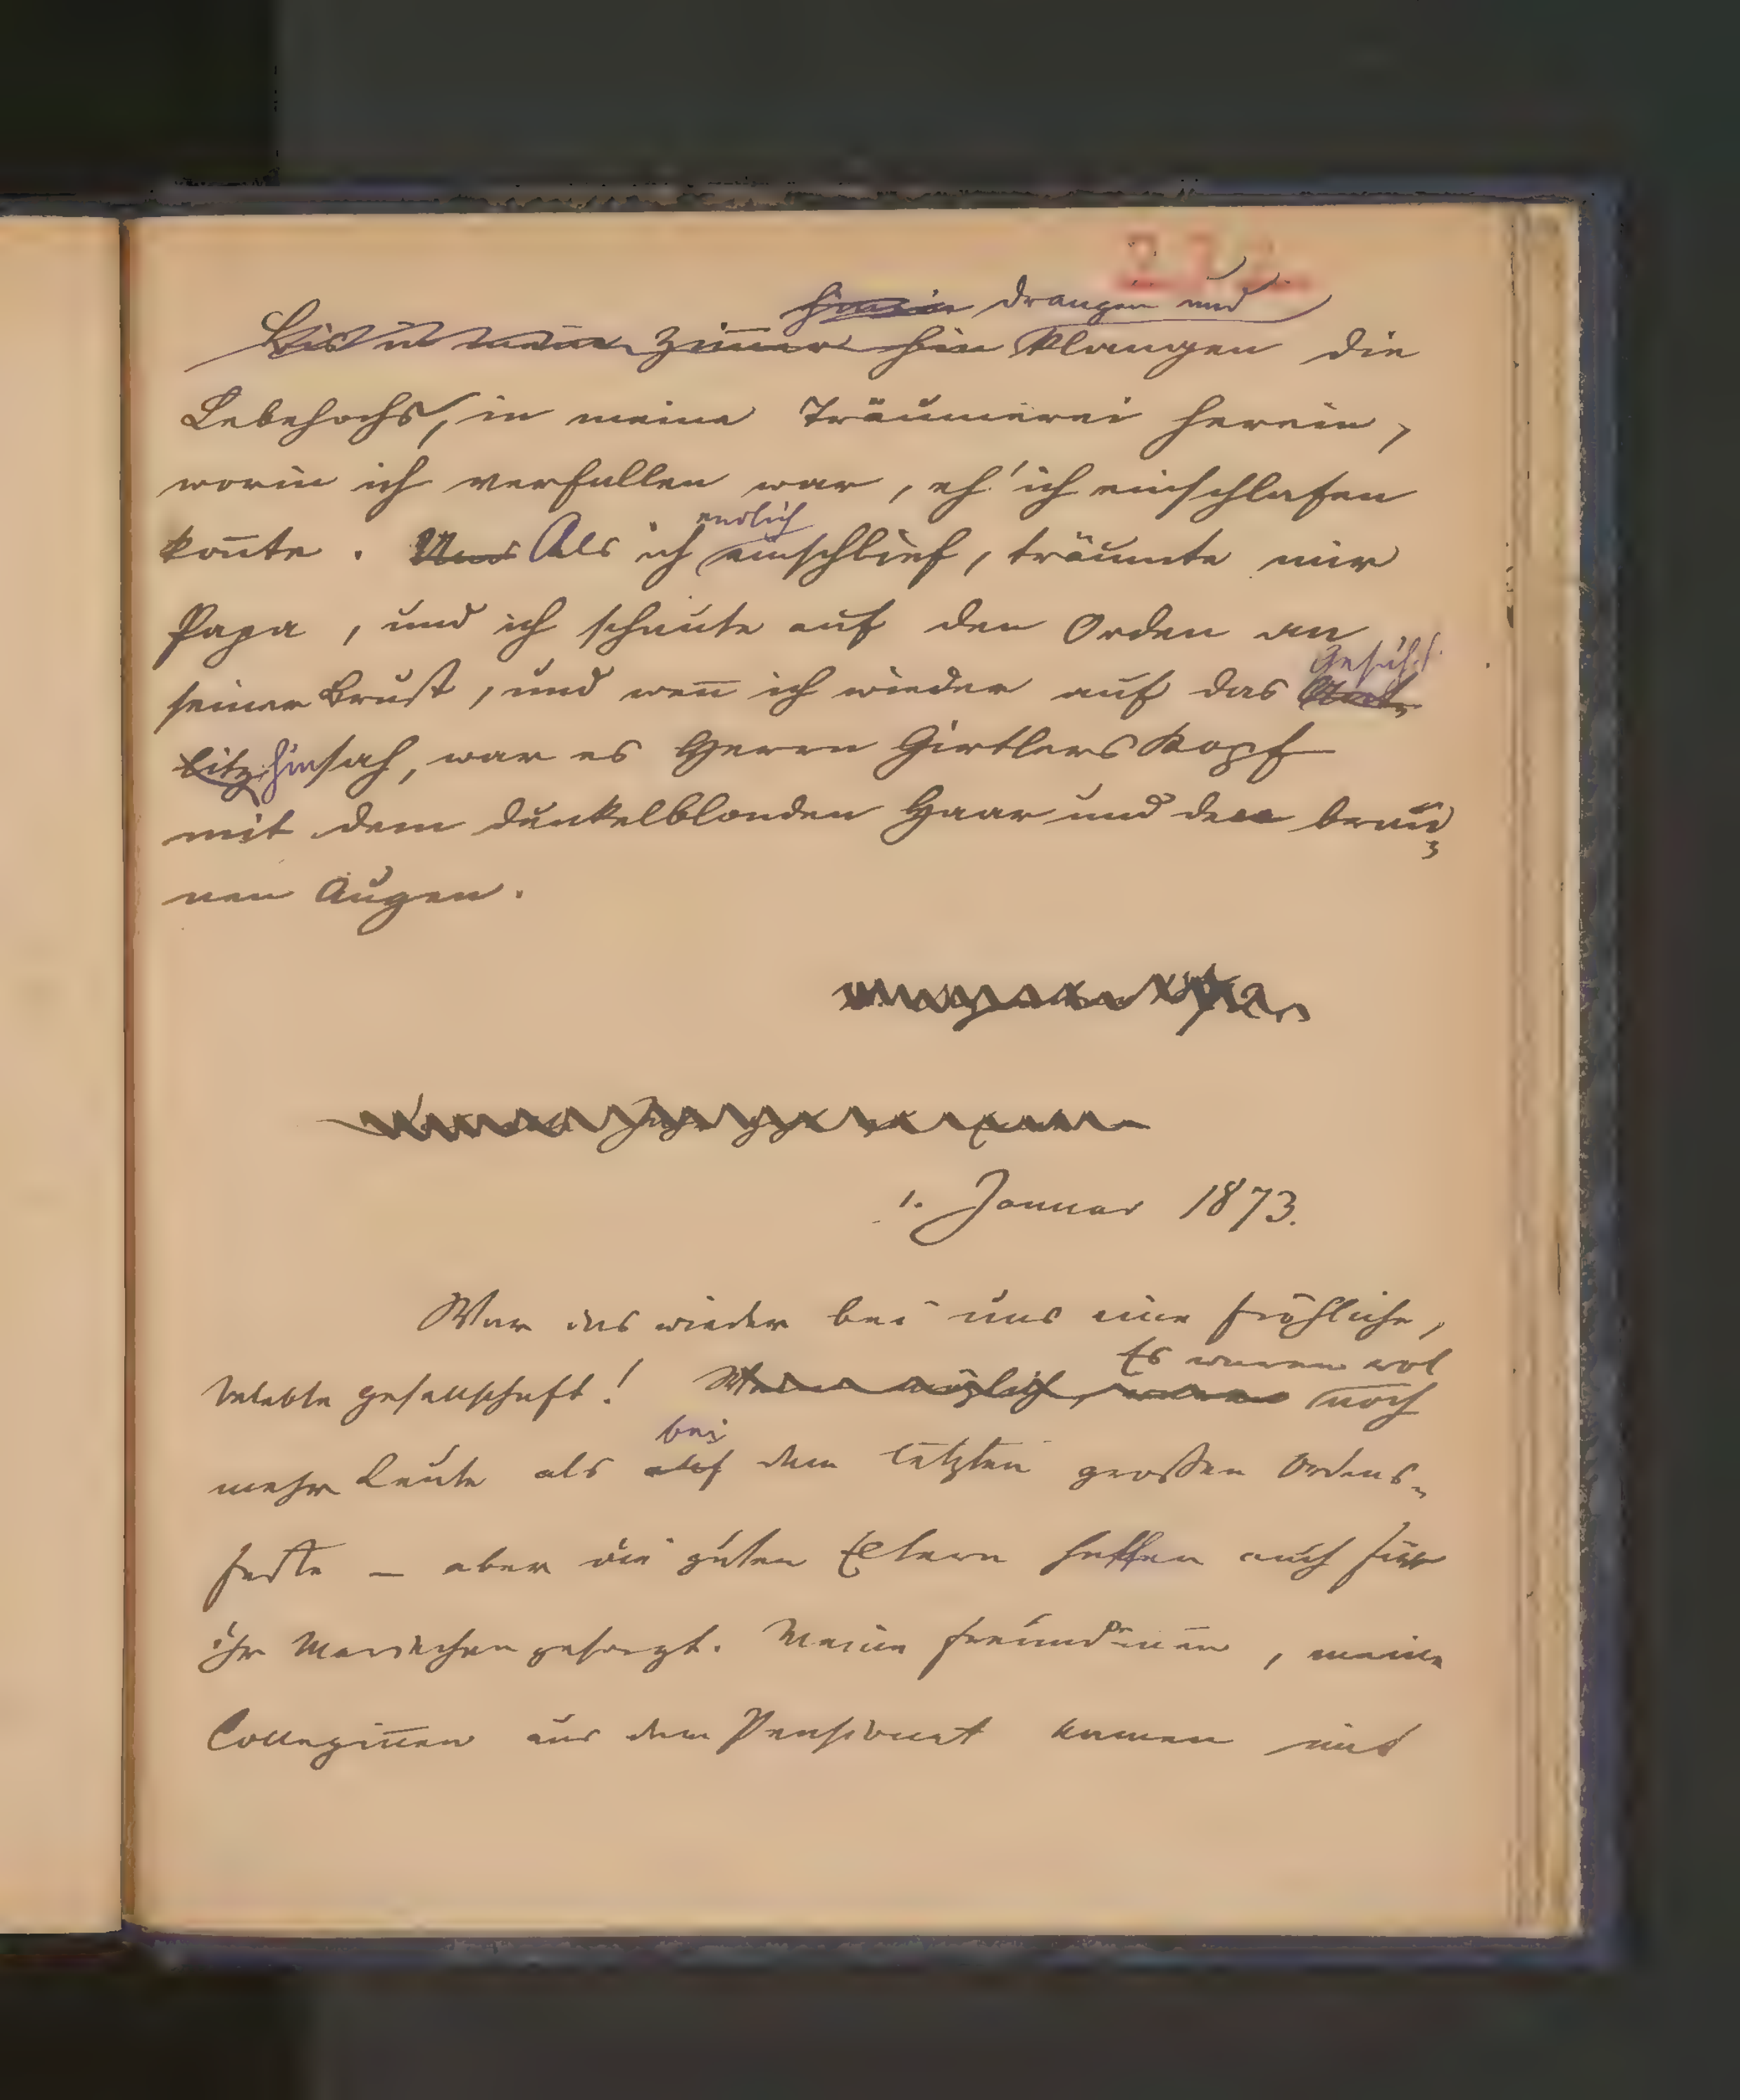 drangen und
Bis in mein Zim̄er hin klangen die
Lebehochs, in meine Träumerei herein,
worin ich verfallen war, eh' ich einschlafen
kon̄te. Und Als ich endlich einschlief, träumte mir
Papa, und ich schaute auf den Orden an
seiner Brust, und wen̄ ich wieder auf das Antlitz Gesicht
hinsah, war es Herrn Girtlers Kopf
mit dem dunkelblonden Haar und den brau-
nen Augen.
1. Januar 1873.
War das wieder bei uns eine fröhliche,
belebte Gesellschaft! Wenn möglich, waren Es waren wol noch
mehr Leute als auf bei dem letzten großen Ordens-
feste – aber die guten Eltern hatten auch für
ihr Mariechen gesorgt. Meine Freundin̄en, meine
Collegin̄en aus dem Pensionat kamen und